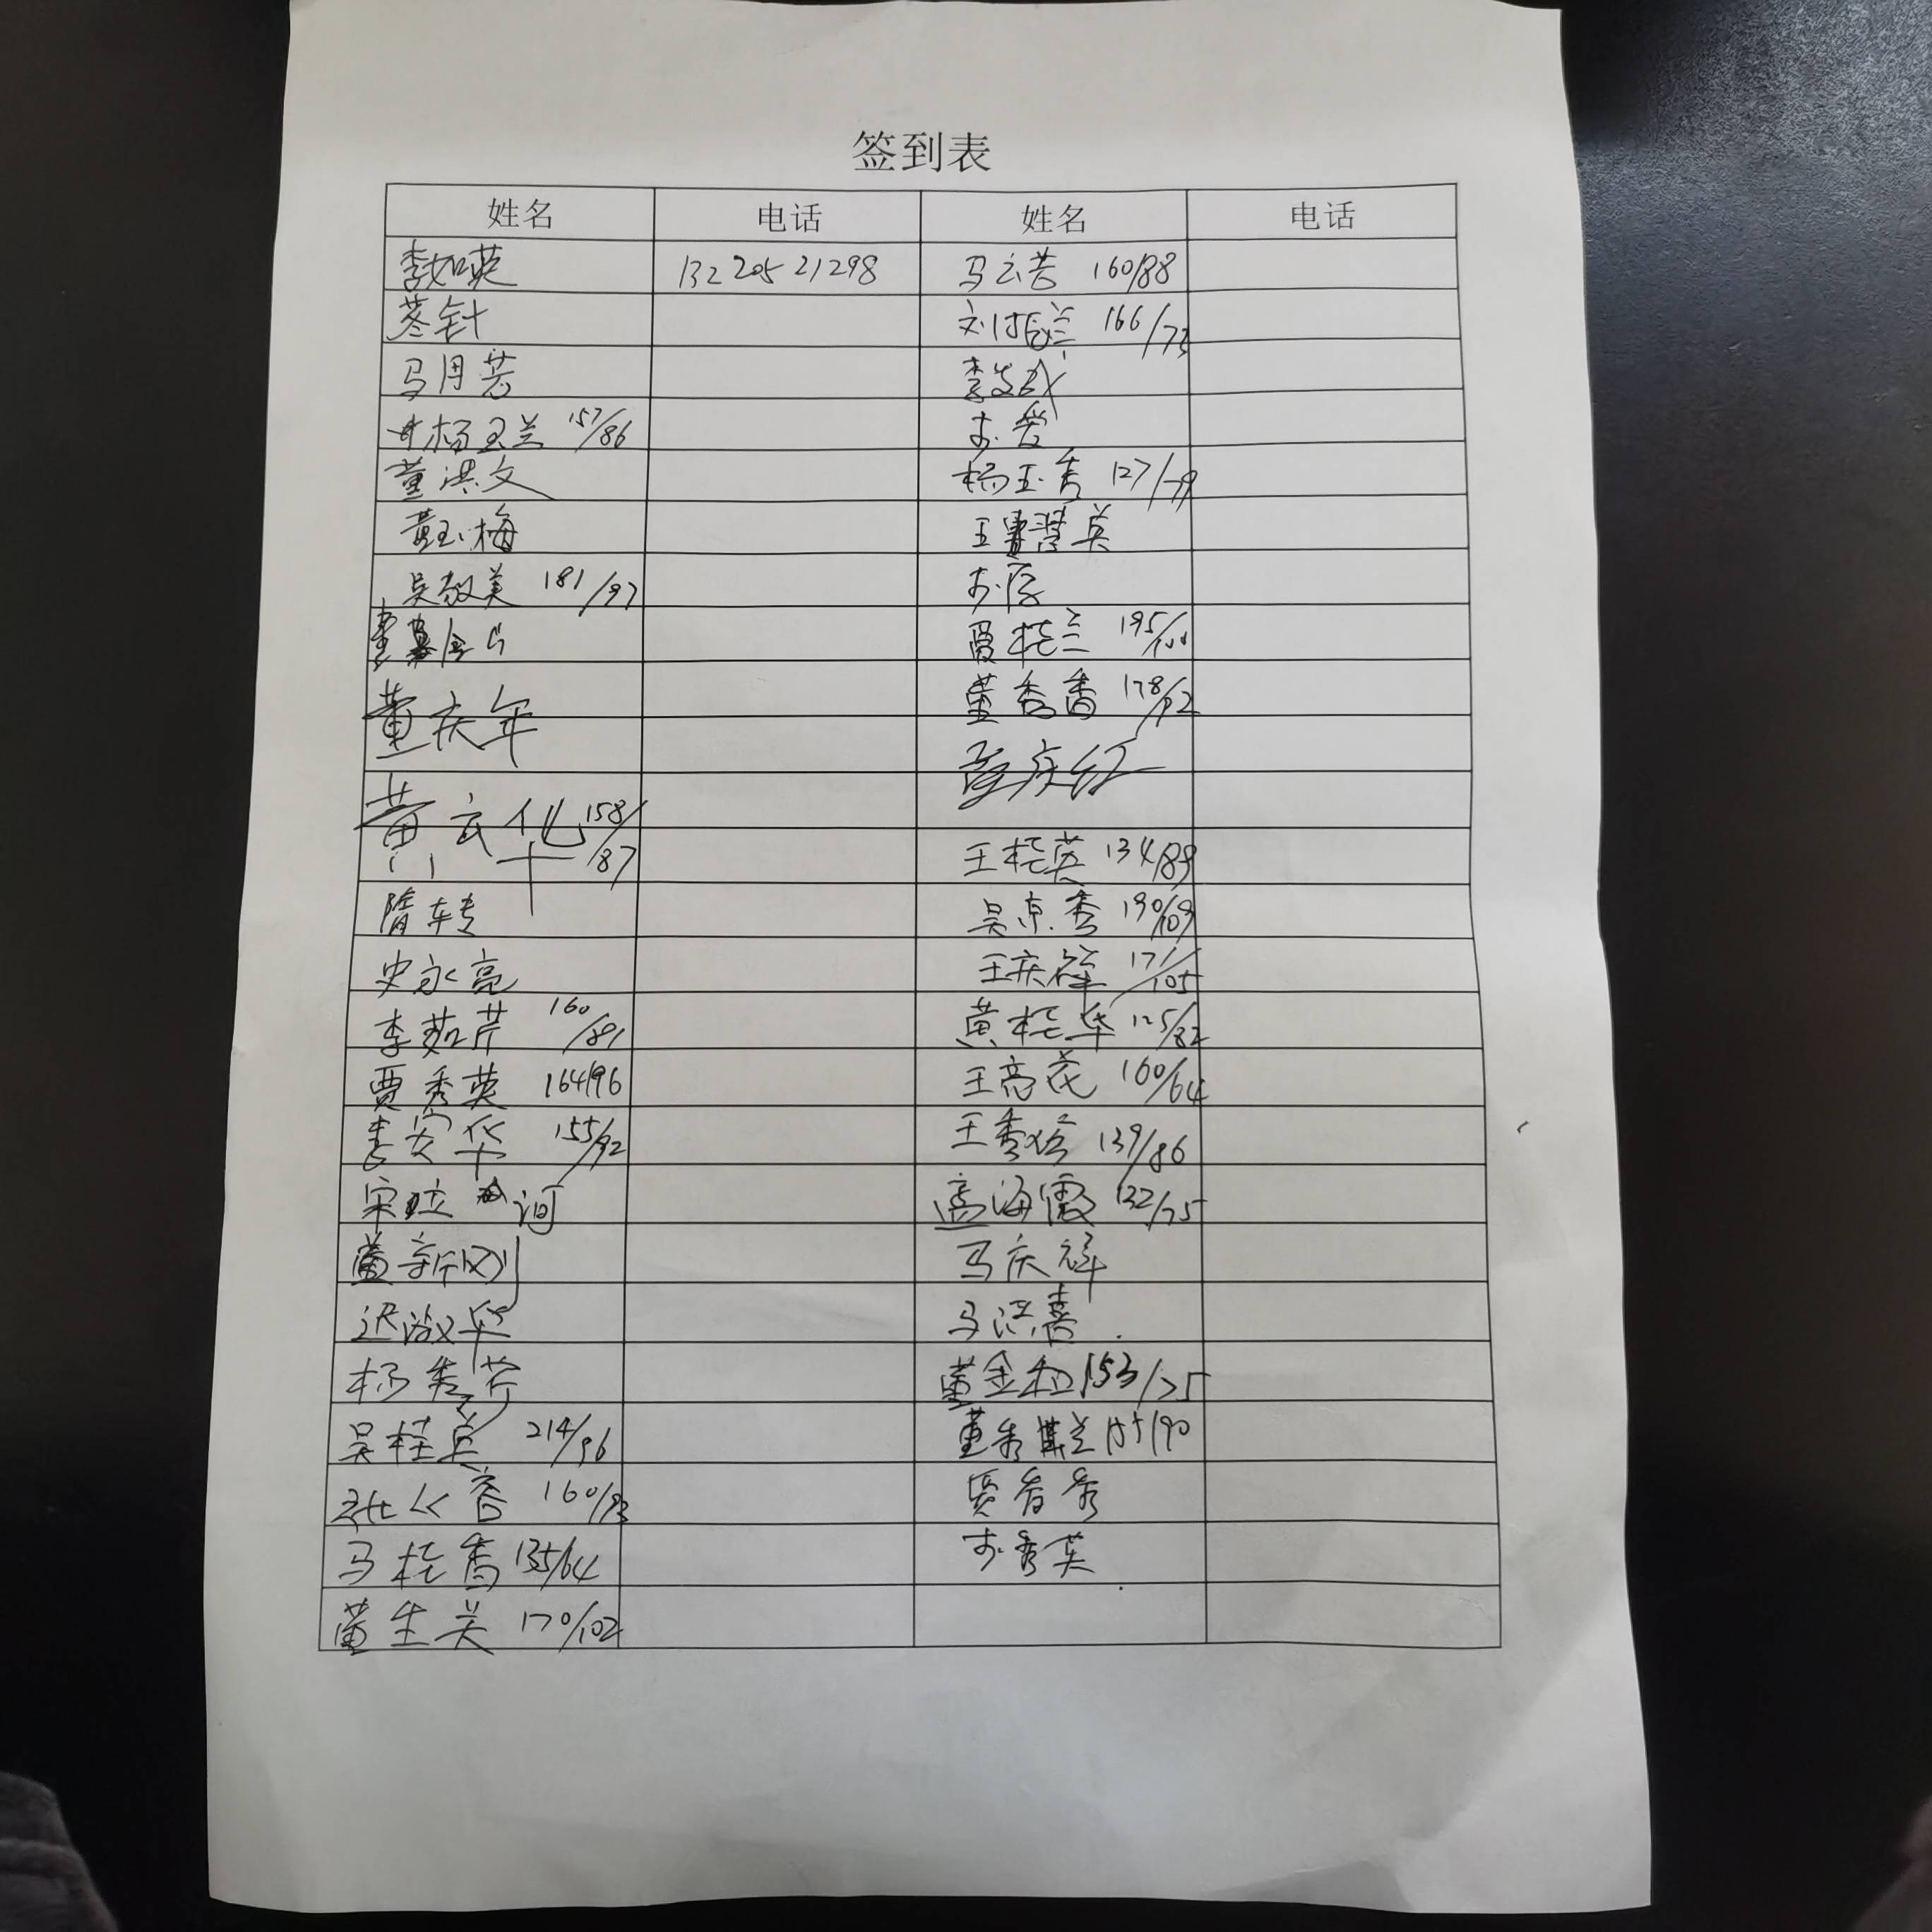 签到表
姓名 电话 姓名 电话
李如英 13220521298 马云芳 160/88
针 刘 兰 166/73
马月芳 李
杨玉兰 157/86 于爱
董洪文 杨玉秀 127/79
黄玉梅 王 英
吴敬美 181/97 于
董 贾桂兰 195/100
董庆年 董秀香 178/92
董庆红
黄云华 158/87 王桂英 134/89
隋转 吴京秀 190/109
史永亮 王庆祥 171/105
李茹芹 160/81 黄桂华 125/82
贾秀英 164/96 王高花 160/64
李安华 155/92 王秀 139/86
宋 河 海霞 132/75
董新刚 马庆祥
迟淑华 马洪喜
杨秀芹 董金 153/75
吴桂兵 214/96 董秀 兰 155/90
香 160/93 贾春秀
马桂香 135/64 于秀英
董生美 170/102